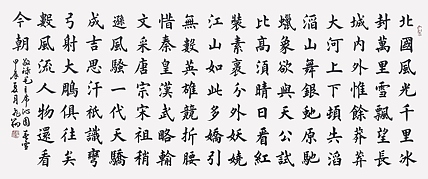 北國風光千里冰
封萬里雪飄望長
城内外惟餘莽莽
大河上下頓失滔
滔山舞銀蛇原馳
蠟象欲與天公試
比高須晴日看紅
裝素裹分外妖嬈
江山如此多嬌引
無數英雄競折腰
惜秦皇漢武略輸
文采唐宗宋祖稍
遜風騷一代天驕
成吉思汗衹識彎
弓射大鵰俱往矣
數風流人物還看
今朝
毛主席沁園春雪
夏月